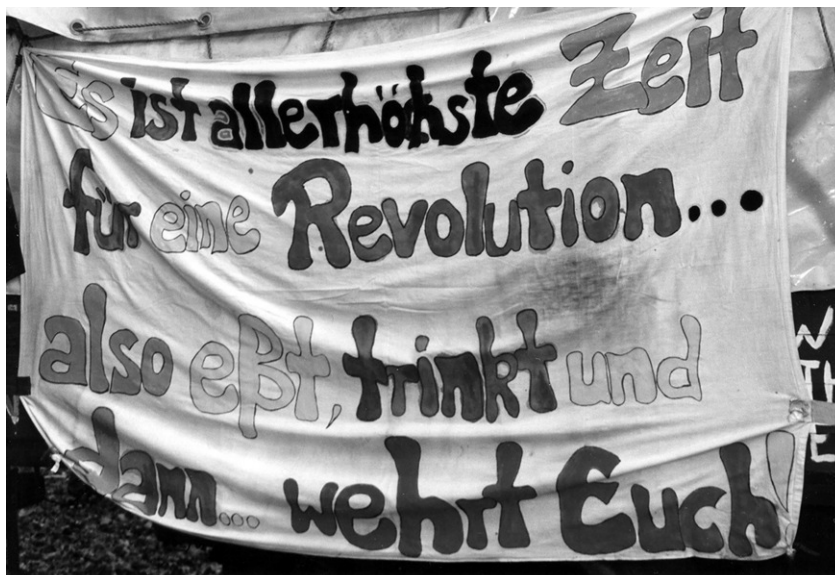 Es ist allerhöchste Zeit
für eine Revolution...
also eßt, trinkt und
dann... wehrt Euch!
W
TH
E